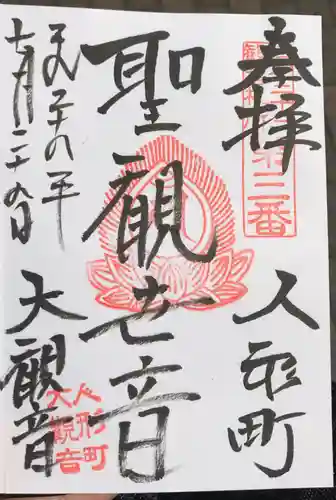 奉拝
第三番
人形町
聖観世音
平成二十八年
七月二十九日
大観音
人形町
大観音